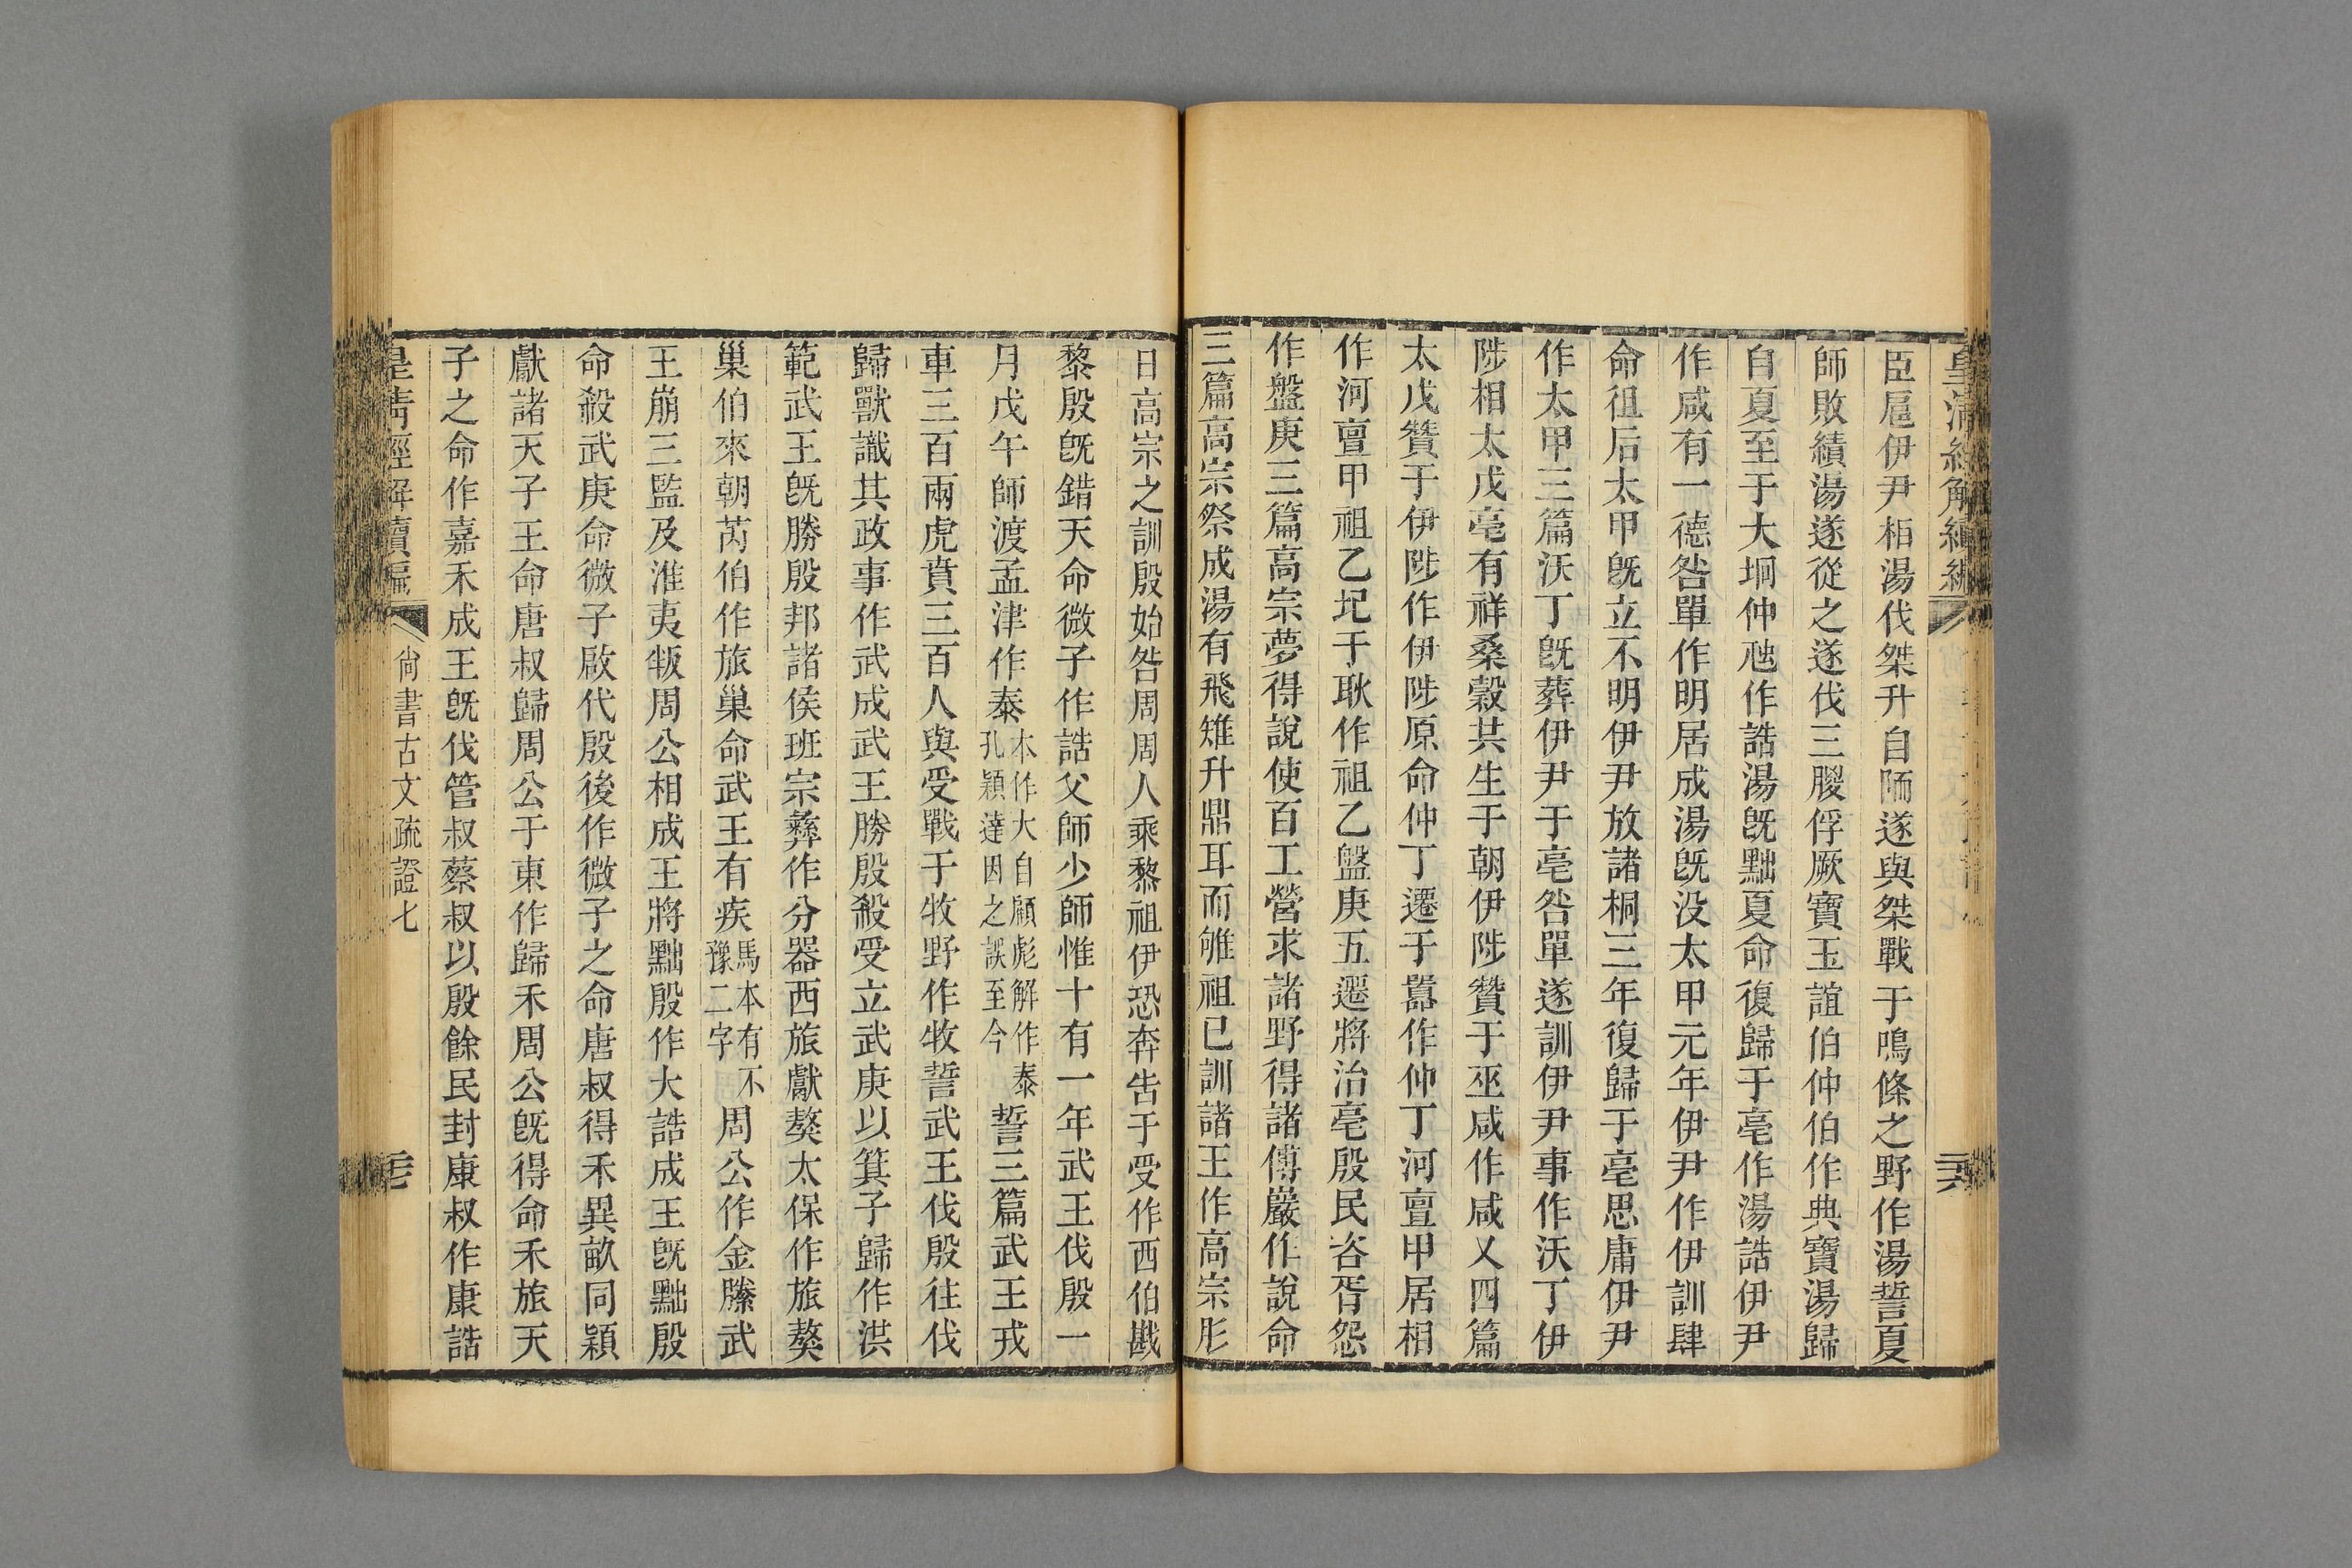 皇清經解續編
臣扈伊尹栢湯伐桀升自陑遂與桀戰于鳴條之野作湯誓夏
師敗績湯遂從之遂伐三朡俘厥寶玉誼伯仲伯作典寶湯歸
自夏至于大坰仲虺作誥湯旣黜夏命復歸于亳作湯誥伊尹
作咸有一德咎單作明居成湯旣没太甲元年伊尹作伊訓肆
命徂后太甲旣立不明伊尹放諸桐三年復歸于亳思庸伊尹
作太甲三篇沃丁旣葬伊尹于亳咎單遂訓伊尹事作沃丁伊
陟相太戊亳有祥桑榖共生于朝伊陟贊于巫咸作咸乂四篇
太戊贊于伊陟作伊陟原命仲丁遷于囂作仲丁河亶甲居相
作河亶甲祖乙圯于耿作祖乙盤庚五遷將治亳殷民咨胥怨
作盤庚三篇高宗夢得說使百工營求諸野得諸傅巖作說命
三篇高宗祭成湯有飛雉升鼎耳而雊祖已訓諸王作高宗肜
日高宗之訓殷始咎周周人乘黎祖伊恐奔告于受作西伯戡
黎殷旣錯天命微子作誥父師少師惟十有一年武王伐殷一
月戊午師渡孟津作泰本作大自顧彪解作泰孔穎達因之誤至今誓三篇武王戎
車三百兩虎賁三百人與受戰于牧野作牧誓武王伐殷往伐
歸獸識其政事作武成武王勝殷殺受立武庚以箕子歸作洪
範武王旣勝殷邦諸侯班宗彝作分器西旅獻獒太保作旅獒
巢伯來朝芮伯作旅巢命武王有疾馬本有不豫二字周公作金縢武
王崩三監及淮夷叛周公相成王將黜殷作大誥成王旣黜殷
命殺武庚命微子啟代殷後作微子之命唐叔得禾異畝同穎
獻諸天子王命唐叔歸周公于東作歸禾周公旣得命禾旅天
子之命作嘉禾成王旣伐管叔蔡叔以殷餘民封康叔作康誥
皇清經解續編 尚書古文疏證七